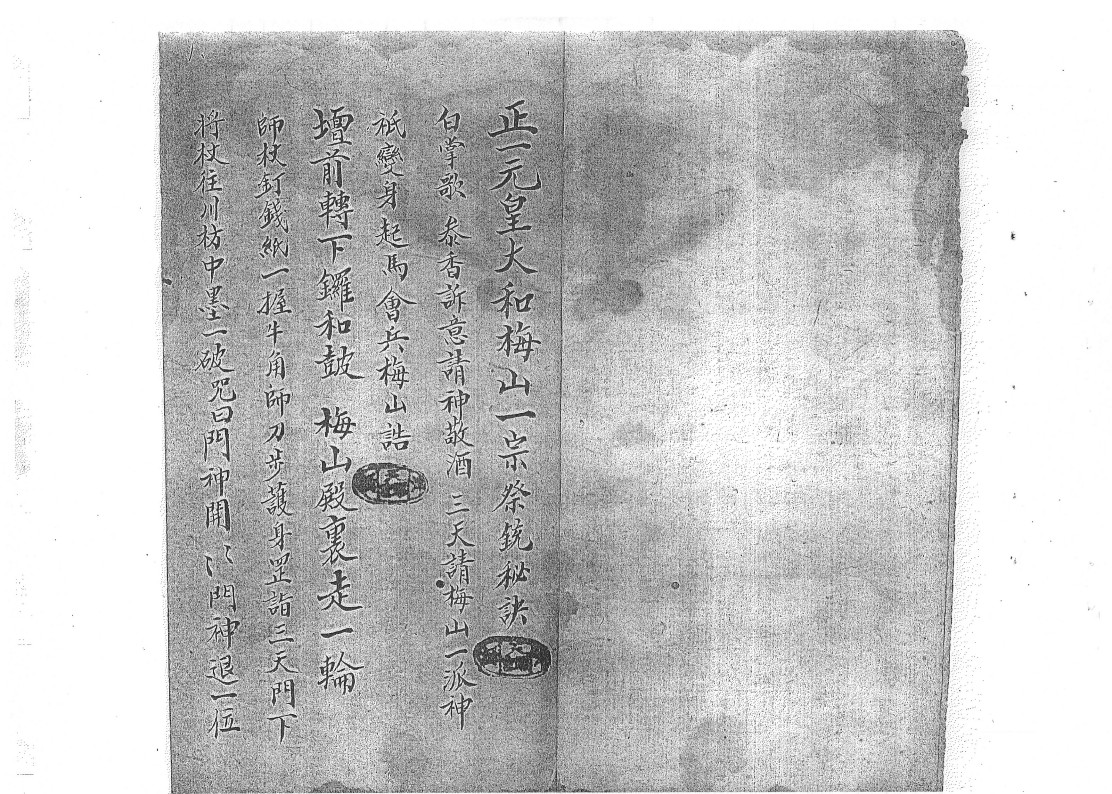 正一元皇大和梅山一宗祭銃秘訣
白掌歌 忝香訴意請神敬酒 三天請梅山一派神
祇變身起馬會兵梅山誥
壇前轉下鑼和鼓 梅山殿裏走一輪
師杖釘錢紙一握牛角師刀步護身罡詣三天門下
將杖往川枋中墨一破咒曰門神開〻門神退一伍